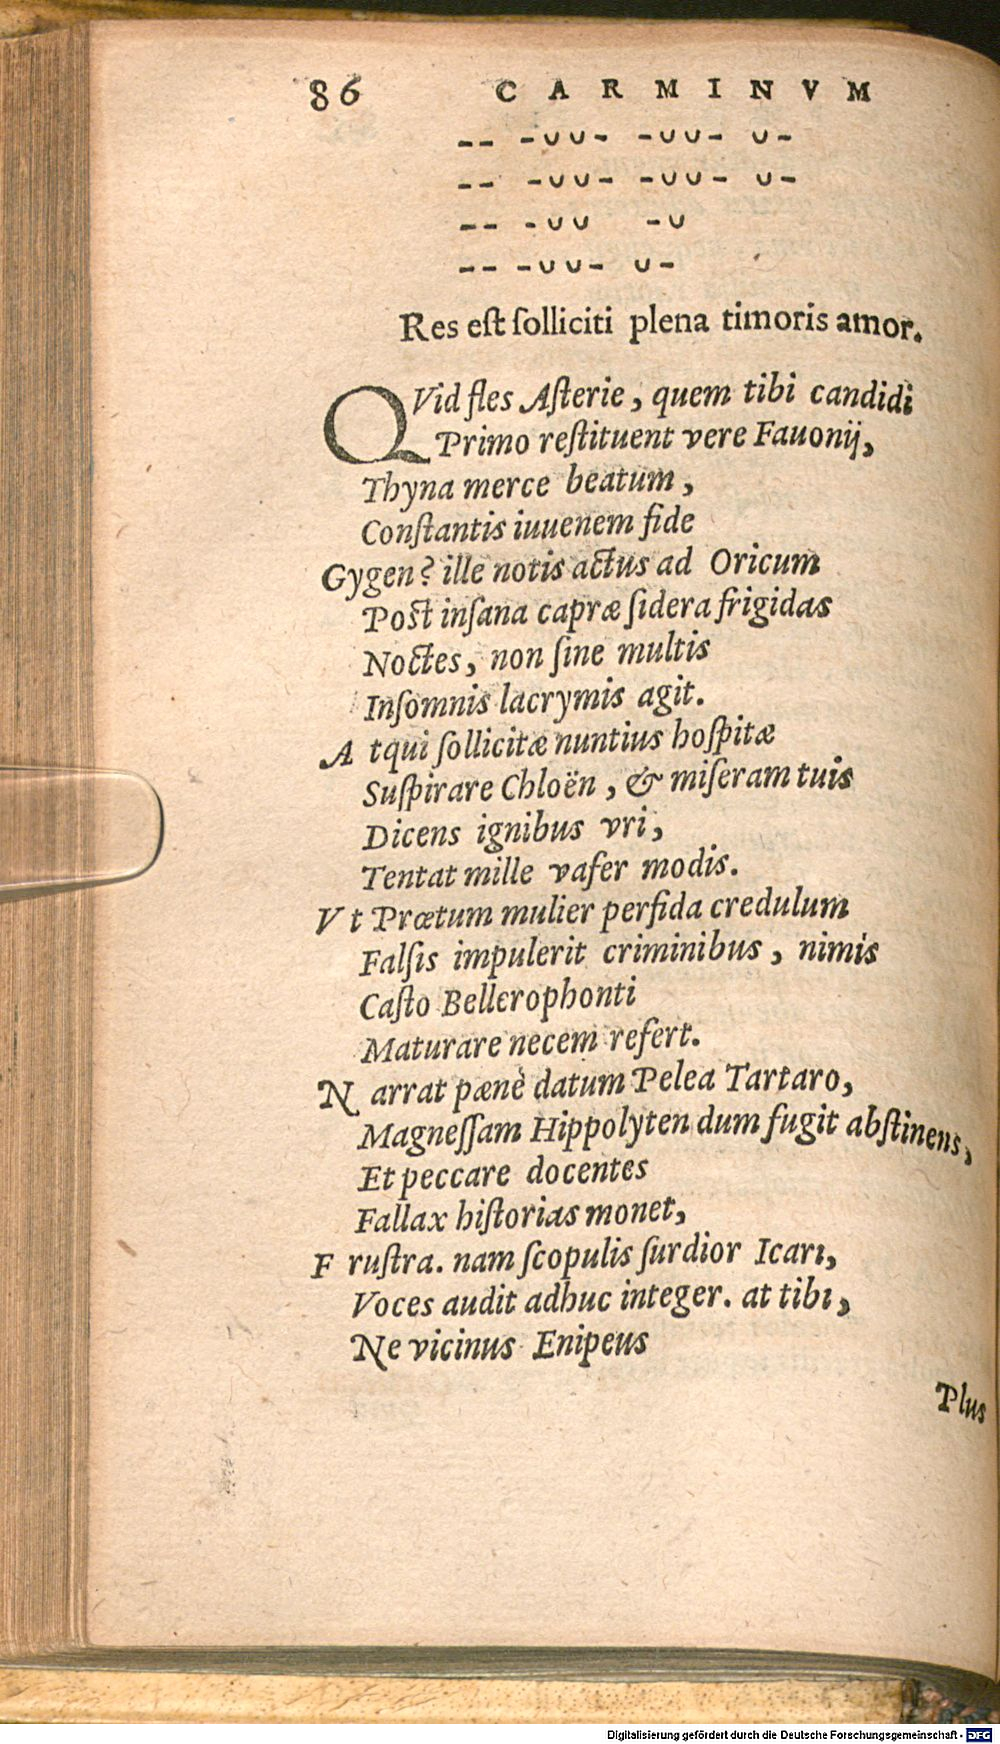 86 CARMINVM
-- -∪∪- -∪∪- ∪-
-- -∪∪- -∪∪- ∪-
-- -∪∪ -∪
-- -∪∪- ∪-
Res eſt ſolliciti plena timoris amor.
QVid fles Aſterie, quem tibi candidi
Primo reſtituent vere Fauonij,
Thyna merce beatum,
Conſtantis iuuenem fide
Gygen? ille notis actus ad Oricum
Poſt inſana capræ ſidera frigidas
Noctes, non ſine multis
Inſomnis lacrymis agit.
A tqui ſollicitæ nuntius hoſpitæ
Suſpirare Chloën, & miſeram tuis
Dicens ignibus vri,
Tentat mille vafer modis.
V t Prœtum mulier perfida credulum
Falſis impulerit criminibus, nimis
Caſto Bellerophonti
Maturare necem refert.
N arrat pænè datum Pelea Tartaro,
Magneſſam Hippolyten dum fugit abſtinens,
Et peccare docentes
Fallax hiſtorias monet,
F ruſtra. nam ſcopulis ſurdior Icari,
Voces audit adhuc integer. at tibi,
Ne vicinus Enipeus
Plus
Digitalisierung gefördert durch die Deutsche Forschungsgemeinschaft - DFG